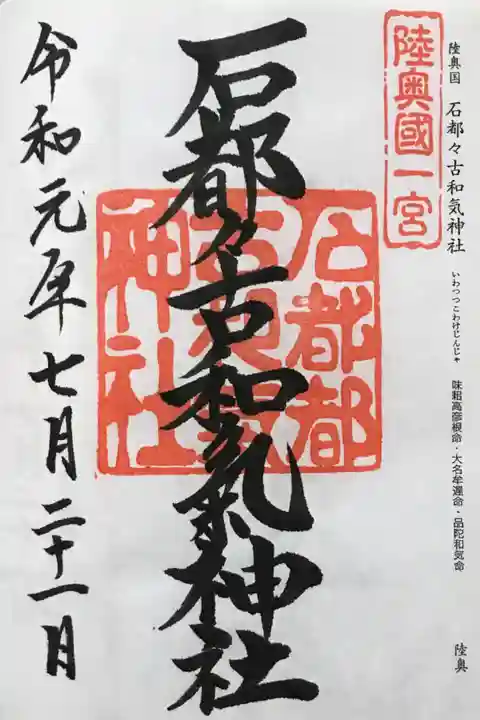 陸奥国 石都々古和気神社 いわつつこわけじんじゃ 味耜高彦根命・大名牟遅命・品陀和気命 陸奥
陸奥國一宮
石都々古和氣神社
石都都
古和氣
神社
令和元年七月二十一日